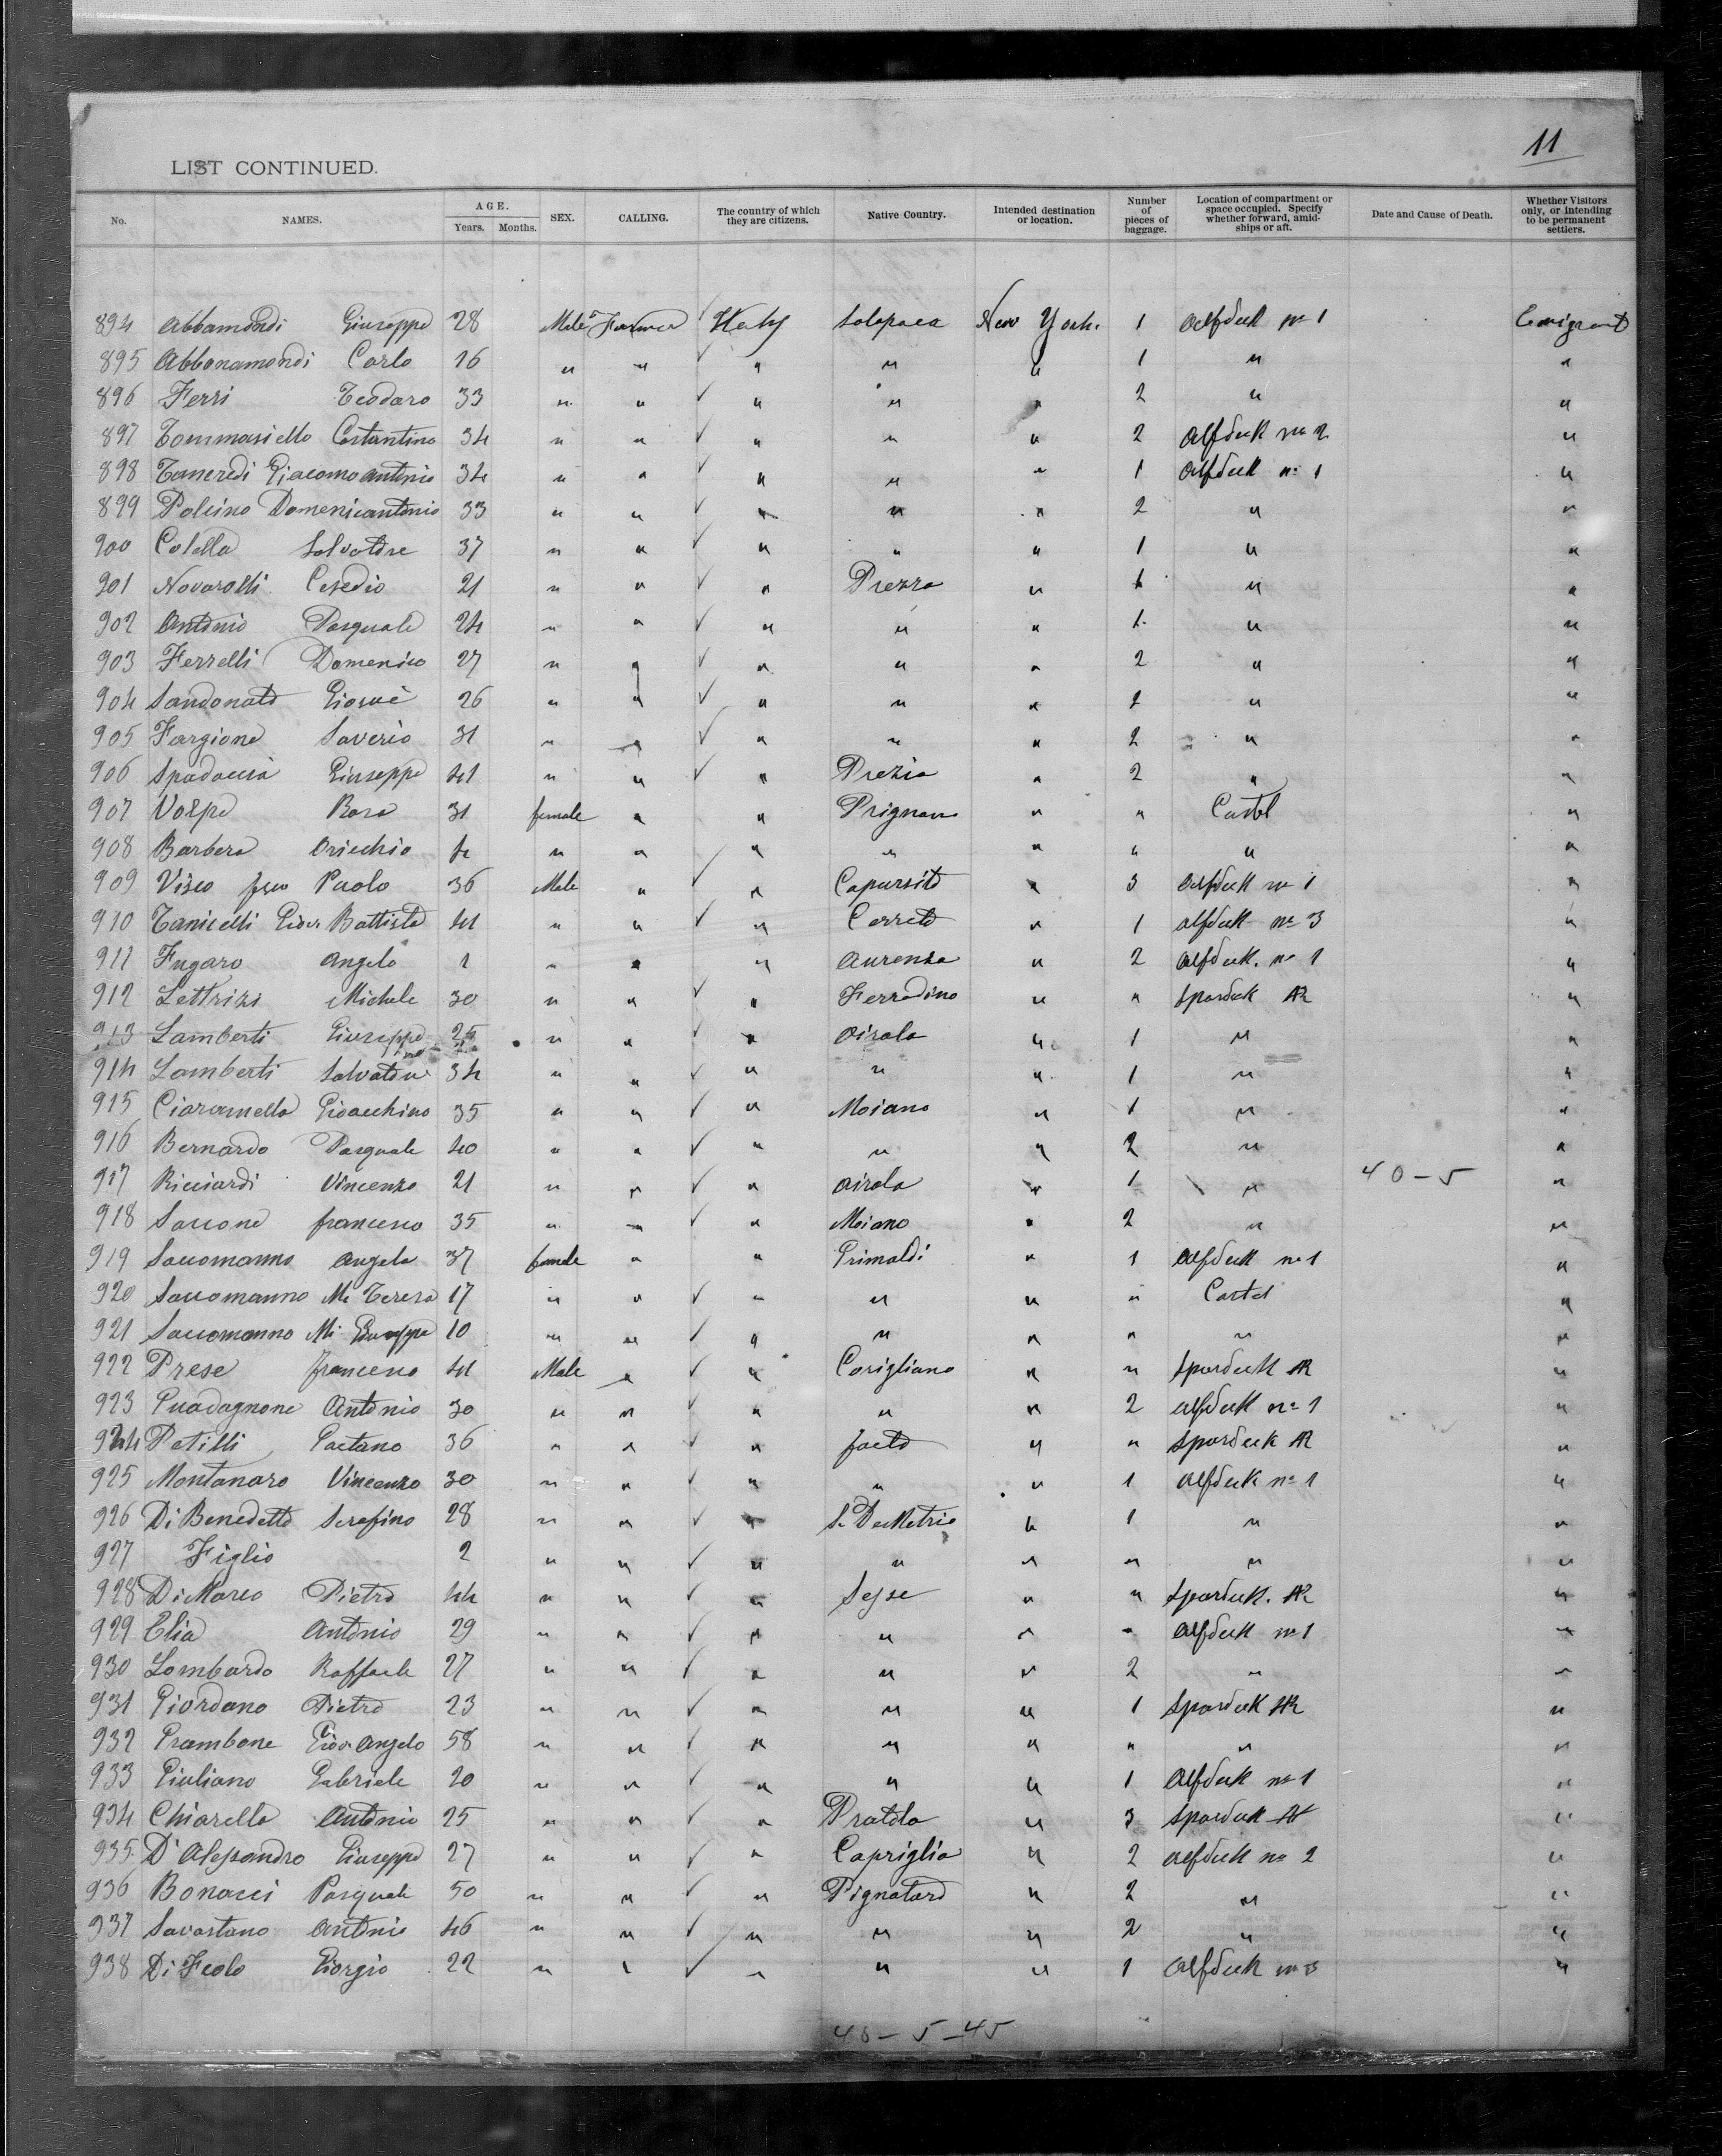 11
LIST CONTINUED.
No. NAMES. AGE. Years. Months. SEX. CALLING. The country of which they are citizens. Native Country. Intended destination or location. Number of pieces of baggage. Location of compartment or space occupied. Specify whether forward, amidships or aft. Date and Cause of Death. Whether Visitors only, or intending to be permanent settlers.
894 Abbamondi Giuseppe 28 Male Farmer Italy Solopaca New York 1 Alfdeck no 1 Emigrant
895 Abbonamondi Carlo 16 " " " " " 1 " "
896 Ferri Teodoro 33 " " " " " 2 " "
897 Tommasiello Costantino 34 " " " " " 2 Alfdeck no 2 "
898 Tancredi Giacomo Antonio 34 " " " " " 1 Alfdeck no 1 "
899 Polcino Domenicantonio 33 " " " " " 2 " "
900 Colella Salvatore 37 " " " " " 1 " "
901 Novarolli Cesedio 21 " " " Prezza " 1 " "
902 Antonio Pasquale 24 " " " " " 1 " "
903 Ferrelli Domenico 27 " " " " " 2 " "
904 Sandonato Giosuè 26 " " " " " 1 " "
905 Fargione Saverio 31 " " " " " 2 " "
906 Spadaccia Giuseppe 41 " " " Prezia " 2 " "
907 Volpe Rosa 31 female " " Prignano " " Castel "
908 Barbera Oricchio 4 " " " " " " " "
909 Visco Paolo 36 Male " " Capursito " 3 Alfdeck no 1 "
910 Tanicelli Giov Battista 41 " " " Cerreto " 1 Alfdeck no 3 "
911 Fugaro Angelo 1 " " " Aurenza " 2 Alfdeck no 1 "
912 Lettrizi Michele 30 " " " Ferradino " " Spardeck AR "
913 Lamberti Giuseppe 25 " " " Airola " 1 " "
914 Lamberti Salvatore 34 " " " " " 1 " "
915 Ciaramella Gioacchino 35 " " " Moiano " 1 " "
916 Bernardo Pasquale 40 " " " " " 2 " "
917 Ricciardi Vincenzo 21 " " " Airola " 1 " 40-5 "
918 Saccone francesco 35 " " " Moiano " 2 " "
919 Saccomanno Angela 37 female " " Grimaldi " 1 Alfdeck no 1 "
920 Saccomanno Ma Teresa 17 " " " " " " Castel "
921 Saccomanno Ma Giuseppa 10 " " " " " " " "
922 Prese francesco 41 Male " " Corigliano " " Spardeck AR "
923 Guadagnone Antonio 30 " " " " " 2 Alfdeck no 1 "
924 Petilli Gaetano 36 " " " faeto " " Spardeck AR "
925 Montanaro Vincenzo 30 " " " " " 1 Alfdeck no 1 "
926 Di Benedetto Serafino 28 " " " S. Demetrio " 1 " "
927 Figlio 2 " " " " " " " "
928 Di Marco Pietro 44 " " " Sesse " " Spardeck. AR "
929 Elia Antonio 29 " " " " " " Alfdeck no 1 "
930 Lombardo Raffaele 27 " " " " " 2 " "
931 Giordano Pietro 23 " " " " " 1 Spardeck AR "
932 Grambone Giov. Angelo 58 " " " " " " " "
933 Giuliano Gabriele 20 " " " " " 1 Alfdeck no 1 "
934 Chiarella Antonio 25 " " " Pratola " 3 Spardeck AR "
935 D'Alessandro Giuseppe 27 " " " Capriglia " 2 Alfdeck no 2 "
936 Bonacci Pasquale 50 " " " Pignataro " 2 " "
937 Savastano Antonio 46 " " " " " 2 " "
938 Di Feolo Giorgio 22 " " " " " 1 Alfdeck no 3 "
40-5-45